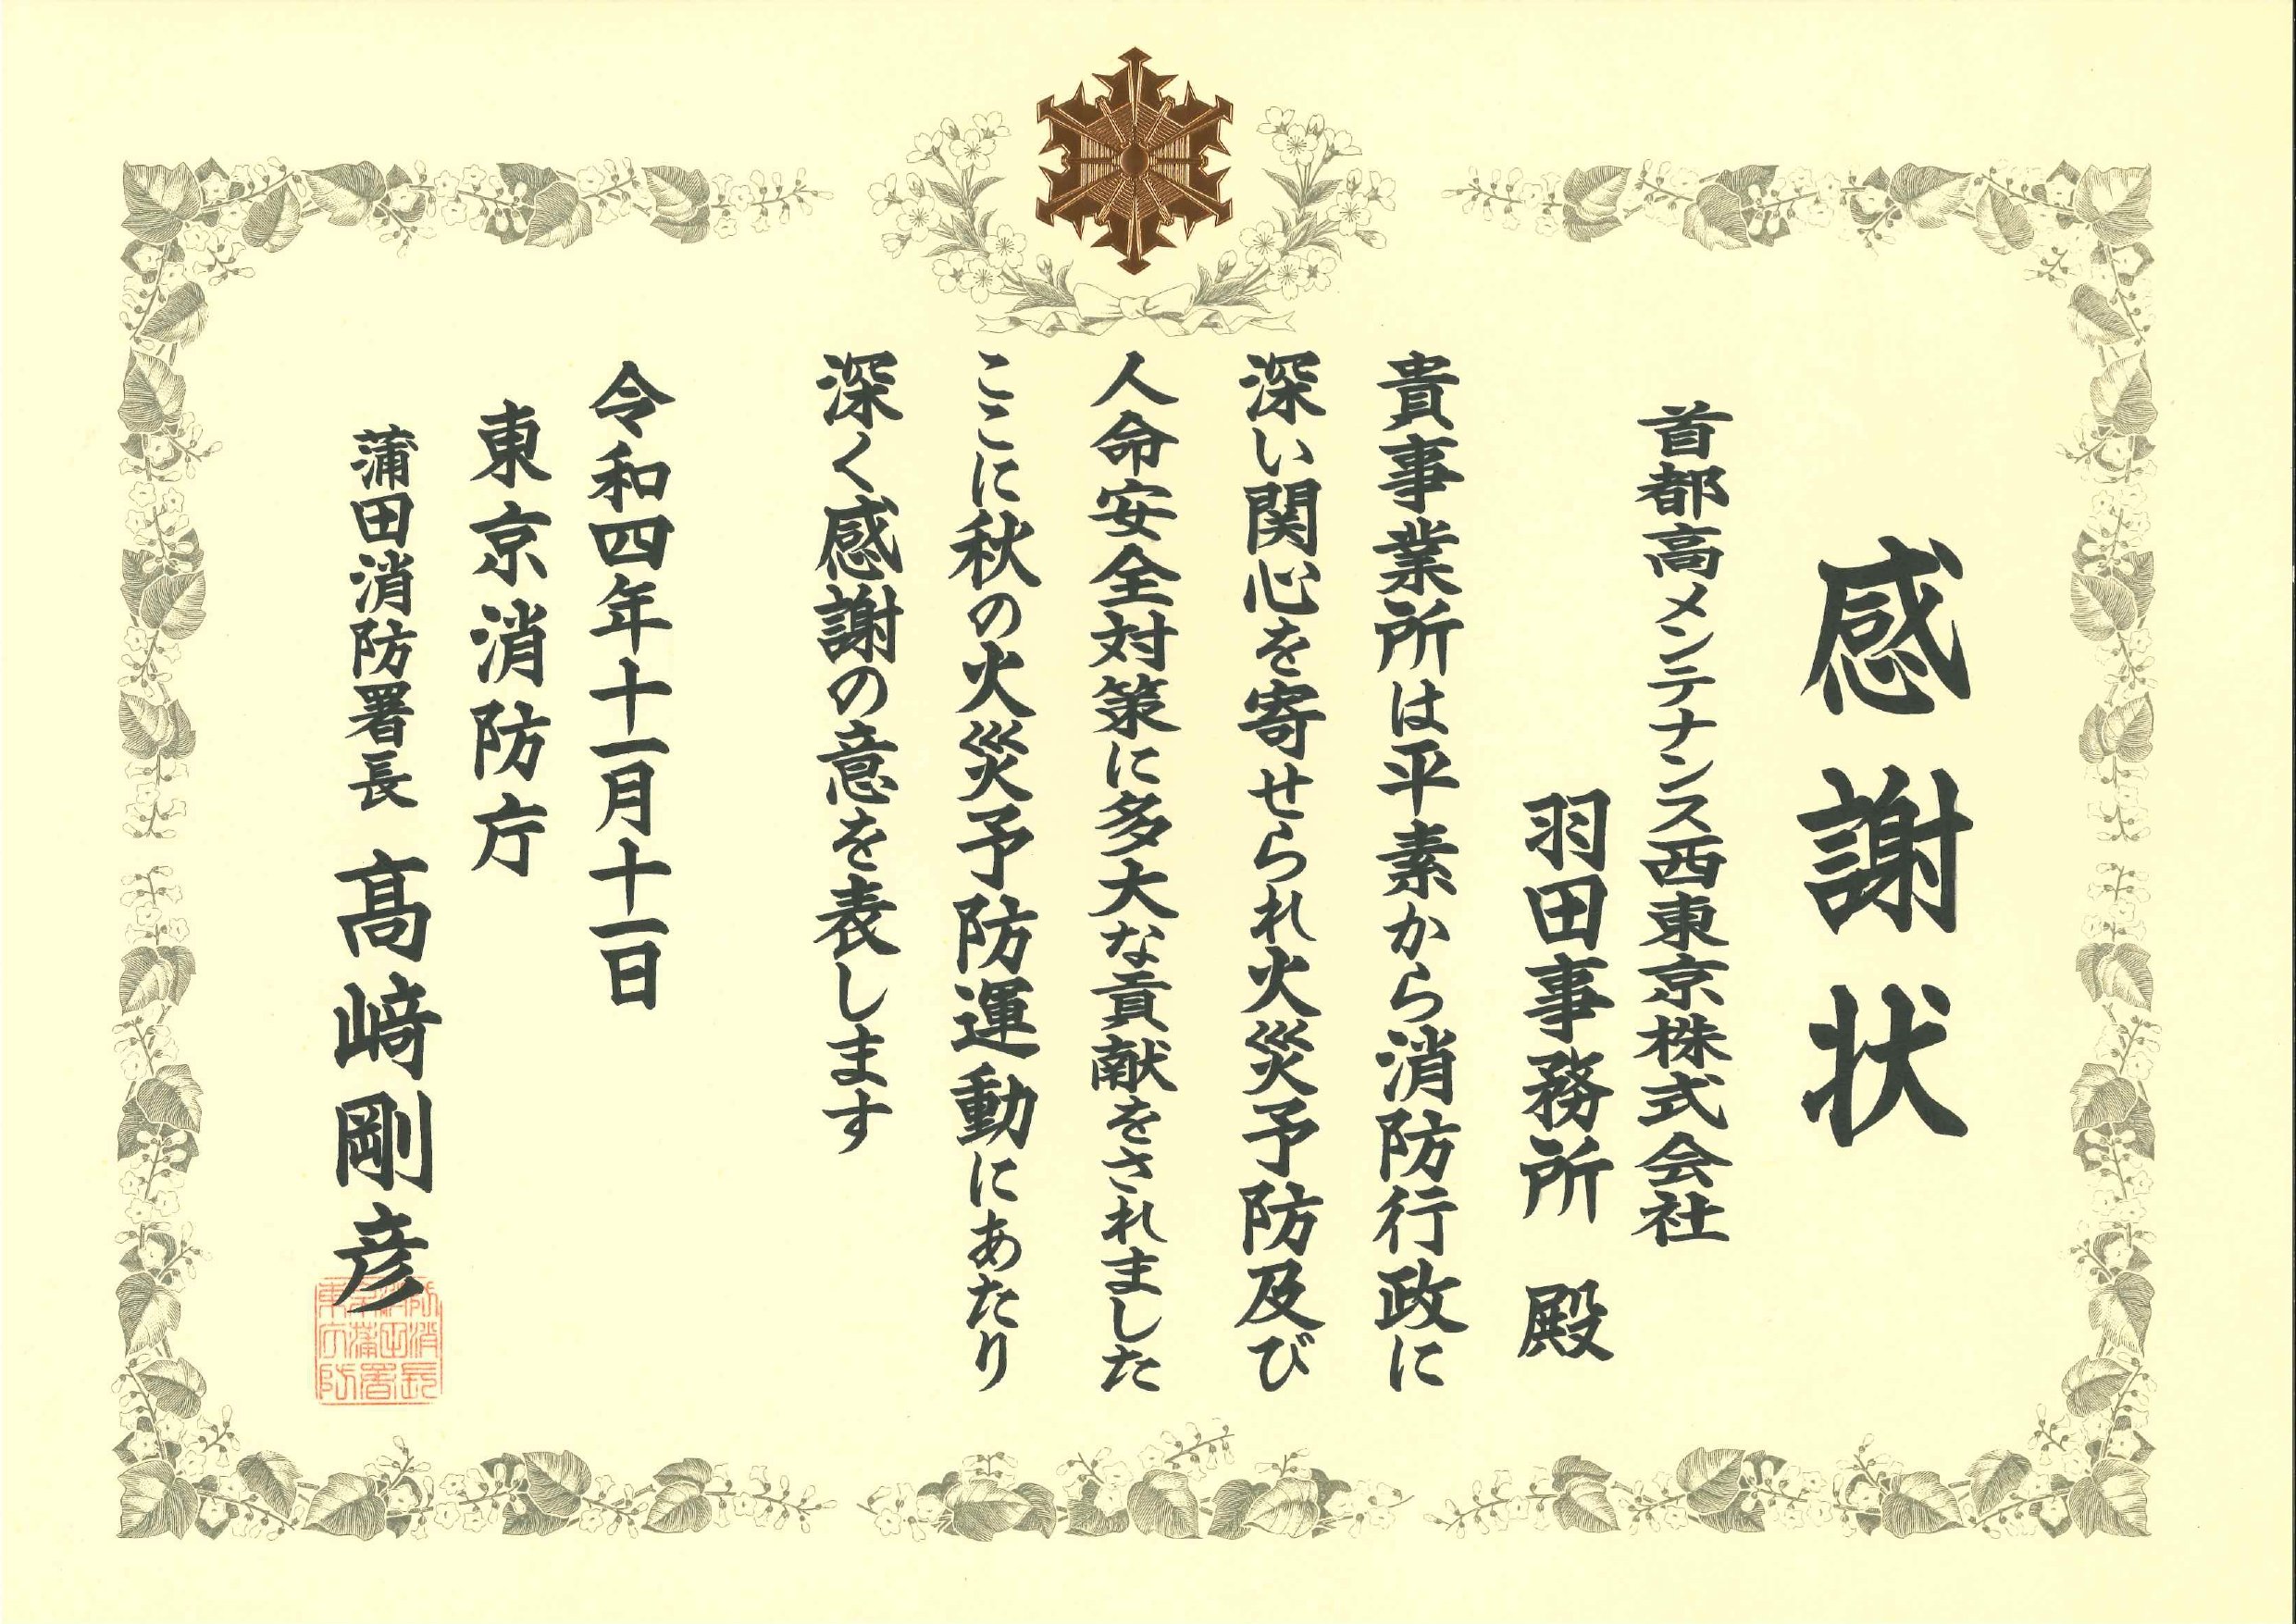 感謝状
首都高メンテナンス西東京株式会社
羽田事務所 殿
貴事業所は平素から消防行政に
深い関心を寄せられ火災予防及び
人命安全対策に多大な貢献をされました
ここに秋の火災予防運動にあたり
深く感謝の意を表します
令和四年十一月十一日
東京消防庁
蒲田消防署長 髙﨑剛彦